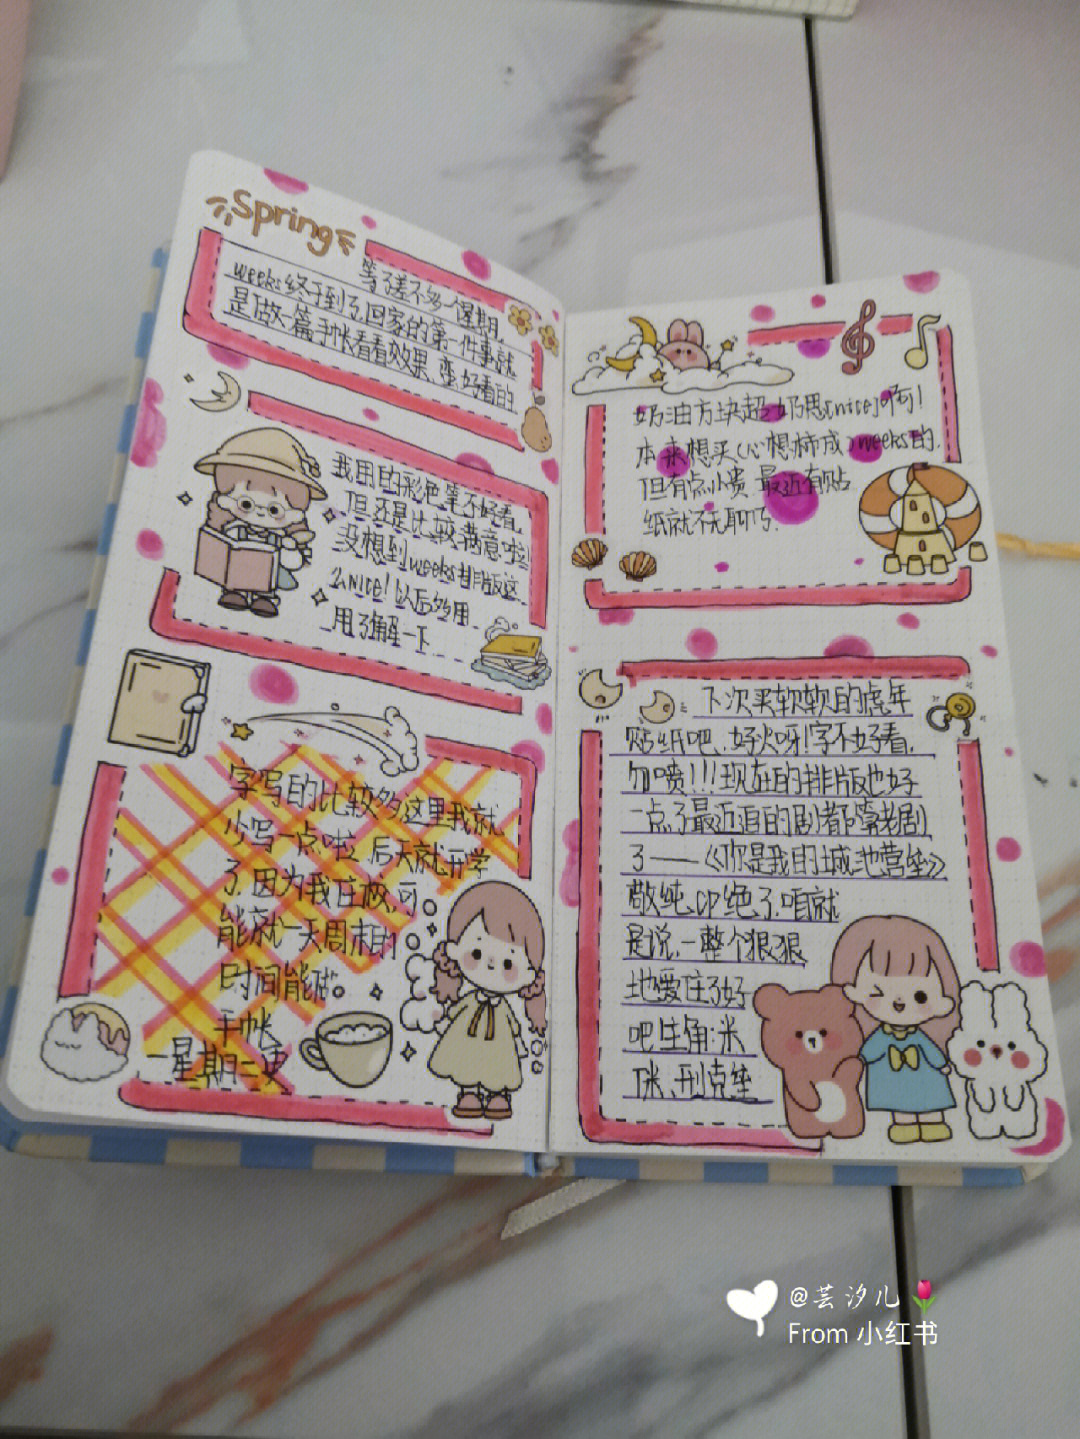 Spring
等了差不多一个星期,
weeks终于到了,回家的第一件事就
是做一篇手帐看看效果、蛮好看的
我用的彩色笔不好看,
但还是比较满意啦!
没想到weeks排版这
么nice!以后多用
用了解一下
字写的比较多这里我就
少写一点啦 后天就开学
了因为我住校,可
能就一天周末的
时间能做
手帐
一星期一更
奶油方块超奶思[nice]啊!
本来想买(心想柿成)weeks的.
但有点小贵 最近有贴
纸就不无聊了.
下次买软软的虎年
贴纸吧、好火呀!字不好看,
勿喷!!!现在的排版也好
一点了最近追的剧都嗑老剧
了——《你是我的城池营垒》
敬纯cp绝了.咱就
是说,一整个狠狠
地爱住了好
吧主角:米
咪、邢克垒
@芸汐儿
From 小红书